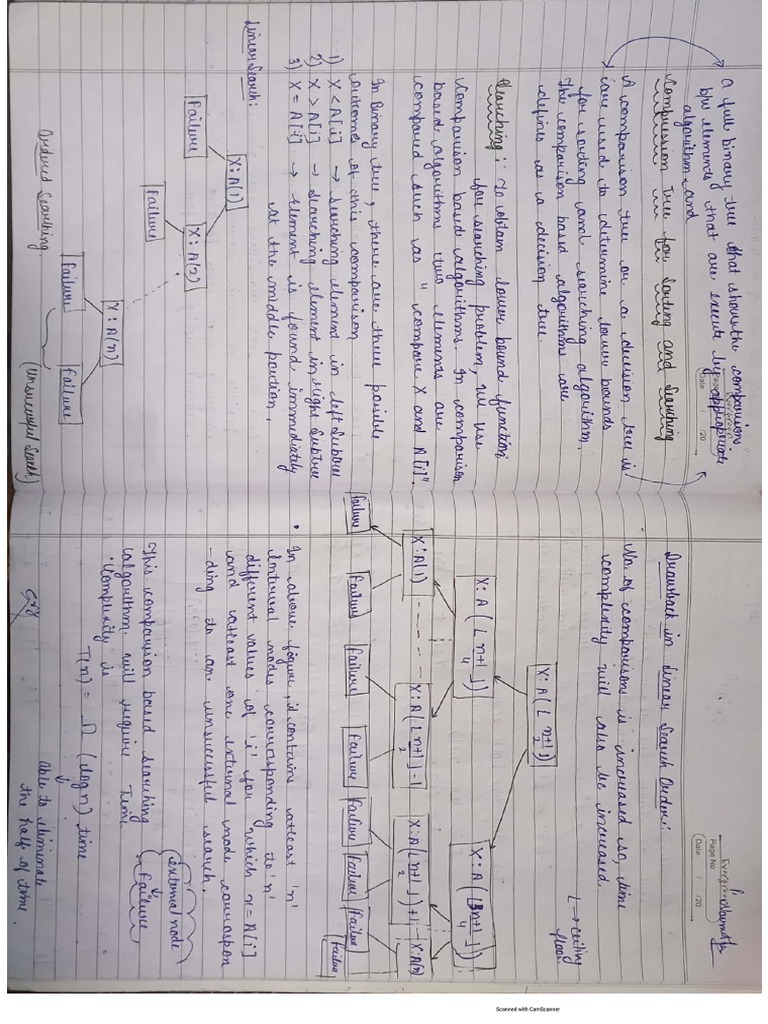 a full binary tree that shows the comparisons
b/w elements that are execute by appropriate
algorithm and
Comparision Tree for Sorting and Searching
A comparison tree or a decision tree is
are used to determine lower bounds
for sorting and searching algorithm.
The comparison based algorithms are
defines as a decision tree.
Searching: To obtain lower bound function
for searching problem, we use
comparison based algorithms. In comparison
based algorithms two elements are
compared such as "compare X and A[i]".
In Binary tree, there are three possible
outcomes of this comparison
1) X < A[i] → Searching element in left Subtree
2) X > A[i] → Searching element in right Subtree
3) X = A[i] → Element is found immediately
at the middle position.
Linear Search:
X: A(1)
Failure
X: A(2)
Failure
X: A(n)
Failure
Failure
Ordered Searching
(Unsuccessful
Date / /20
Evergreen
Page No.
Date / /20
Drawback in Linear Search Order:
No. of comparisons is increased so, time
complexity will also be increased.
L → ceiling
floor
X: A (⌊n+1/2⌋)
X: A (⌊n+1/4⌋)
X: A (⌊3n+1/4⌋)
X: A(1)
X: A(⌊n+1/2⌋-1
X: A(⌊n+1/2⌋)+1
X: A(n)
Failure
Failure
Failure
Failure
Failure
Failure
Failure
Failure
• In above figure, it contains atleast 'n'
internal nodes corresponding to 'n'
different values of 'i' for which x = A[i]
and atleast one external node correspon
-ding to an unsuccessful search.
(external node
(Failure)
This comparison based searching
algorithm will require Time
Complexity is
T(n) = Ω (log n) time
able to eliminate
the half of time.
Scanned with CamScanner